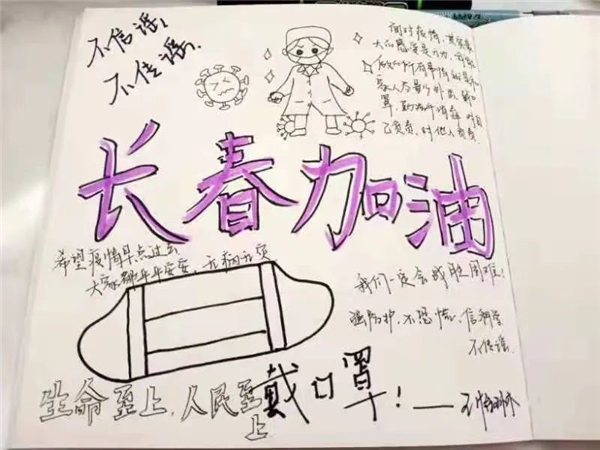 不信谣!
不传谣.
面对疫情,
大的感受是
家人尽量少外出,戴口
罩,勤洗手消毒 对自
己负责,对他人负责
长春加油
希望疫情早点过去
大家都平平安安,
我们一定会战胜困难!
强防护、不恐慌、信科学
不传谣.
生命至上,人民至
上
戴口罩!——王